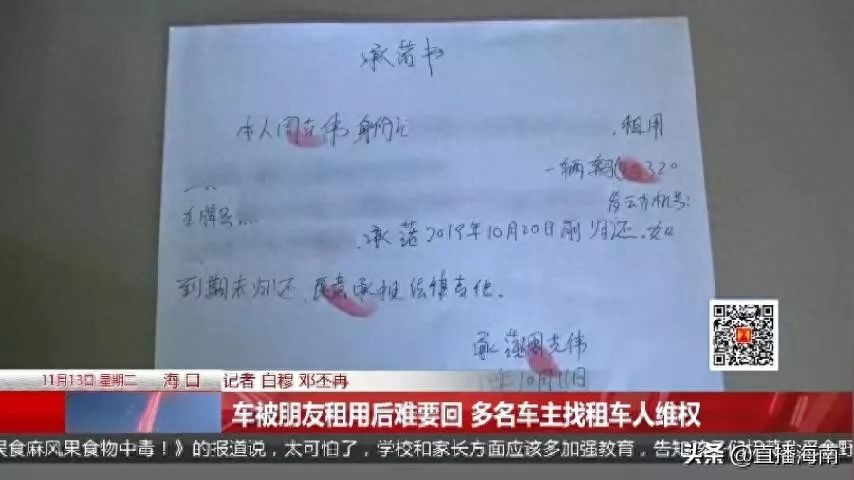 承诺书
本人周克伟身份证 租用
一辆 320
车牌号
发动机号:
承诺2019年10月20日前归还.如
到期未归还,愿意承担法律责任。
周克伟
年10月11日
11月13日 星期二 海口 记者 白穆 邓丕冉
车被朋友租用后难要回 多名车主找租车人维权
误食麻风果食物中毒！》的报道说，太可怕了，学校和家长方面应该多加强教育，告知孩子们
头条 @直播海南